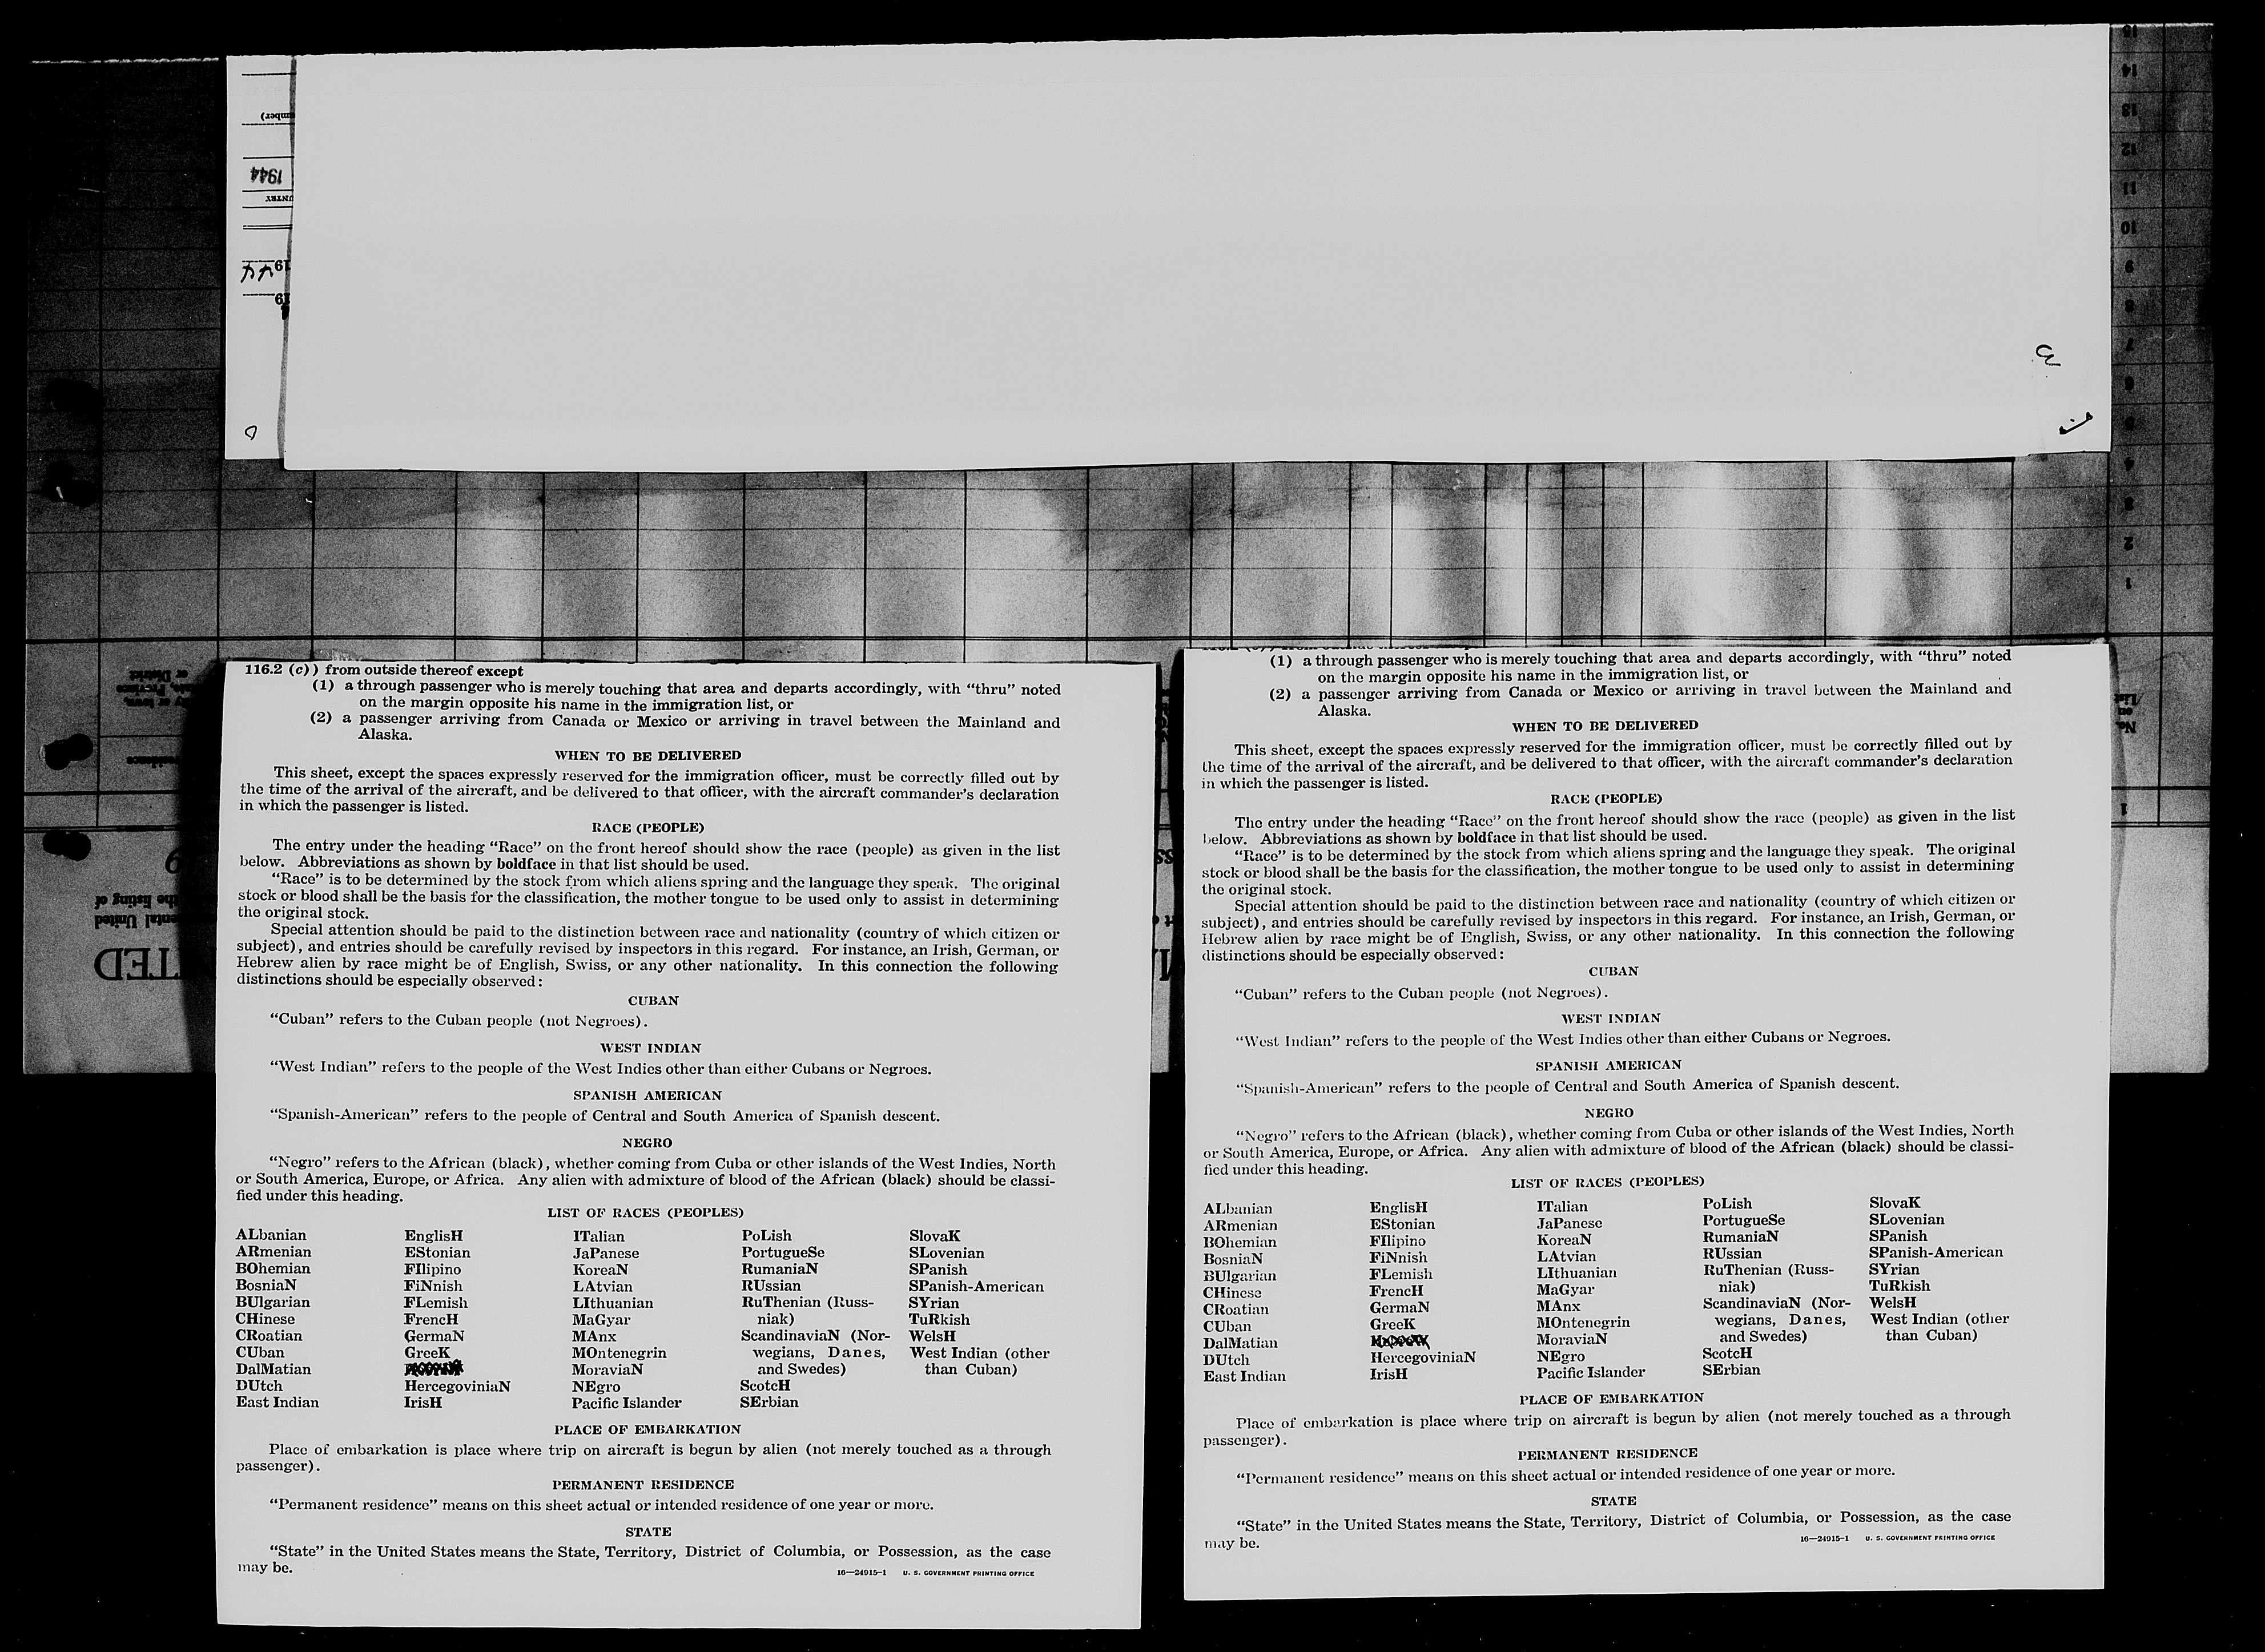 1944
19
44
19
15
14
13
12
11
10
9
8
7
6
5
4
3
2
1
3
116.2 (c)) from outside thereof except
(1) a through passenger who is merely touching that area and departs accordingly, with “thru” noted
on the margin opposite his name in the immigration list, or
(2) a passenger arriving from Canada or Mexico or arriving in travel between the Mainland and
Alaska.
WHEN TO BE DELIVERED
This sheet, except the spaces expressly reserved for the immigration officer, must be correctly filled out by
the time of the arrival of the aircraft, and be delivered to that officer, with the aircraft commander’s declaration
in which the passenger is listed.
RACE (PEOPLE)
The entry under the heading “Race” on the front hereof should show the race (people) as given in the list
below. Abbreviations as shown by boldface in that list should be used.
“Race” is to be determined by the stock from which aliens spring and the language they speak. The original
stock or blood shall be the basis for the classification, the mother tongue to be used only to assist in determining
the original stock.
Special attention should be paid to the distinction between race and nationality (country of which citizen or
subject), and entries should be carefully revised by inspectors in this regard. For instance, an Irish, German, or
Hebrew alien by race might be of English, Swiss, or any other nationality. In this connection the following
distinctions should be especially observed:
CUBAN
“Cuban” refers to the Cuban people (not Negroes).
WEST INDIAN
“West Indian” refers to the people of the West Indies other than either Cubans or Negroes.
SPANISH AMERICAN
“Spanish-American” refers to the people of Central and South America of Spanish descent.
NEGRO
“Negro” refers to the African (black), whether coming from Cuba or other islands of the West Indies, North
or South America, Europe, or Africa. Any alien with admixture of blood of the African (black) should be classi-
fied under this heading.
LIST OF RACES (PEOPLES)
ALbanian
ARmenian
BOhemian
BosniaN
BUlgarian
CHinese
CRoatian
CUban
DalMatian
DUtch
East Indian
EnglisH
EStonian
FIlipino
FiNnish
FLemish
FrencH
GermaN
GreeK
HercegoviniaN
IrisH
ITalian
JaPanese
KoreaN
LAtvian
LIthuanian
MaGyar
MAnx
MOntenegrin
MoraviaN
NEgro
Pacific Islander
PoLish
PortugueSe
RumaniaN
RUssian
RuThenian (Russ-
niak)
ScandinaviaN (Nor-
wegians, Danes,
and Swedes)
ScotcH
SErbian
SlovaK
SLovenian
SPanish
SPanish-American
SYrian
TuRkish
WelsH
West Indian (other
than Cuban)
PLACE OF EMBARKATION
Place of embarkation is place where trip on aircraft is begun by alien (not merely touched as a through
passenger).
PERMANENT RESIDENCE
“Permanent residence” means on this sheet actual or intended residence of one year or more.
STATE
“State” in the United States means the State, Territory, District of Columbia, or Possession, as the case
may be.
16—24915-1 U. S. GOVERNMENT PRINTING OFFICE
(1) a through passenger who is merely touching that area and departs accordingly, with “thru” noted
on the margin opposite his name in the immigration list, or
(2) a passenger arriving from Canada or Mexico or arriving in travel between the Mainland and
Alaska.
WHEN TO BE DELIVERED
This sheet, except the spaces expressly reserved for the immigration officer, must be correctly filled out by
the time of the arrival of the aircraft, and be delivered to that officer, with the aircraft commander’s declaration
in which the passenger is listed.
RACE (PEOPLE)
The entry under the heading “Race” on the front hereof should show the race (people) as given in the list
below. Abbreviations as shown by boldface in that list should be used.
“Race” is to be determined by the stock from which aliens spring and the language they speak. The original
stock or blood shall be the basis for the classification, the mother tongue to be used only to assist in determining
the original stock.
Special attention should be paid to the distinction between race and nationality (country of which citizen or
subject), and entries should be carefully revised by inspectors in this regard. For instance, an Irish, German, or
Hebrew alien by race might be of English, Swiss, or any other nationality. In this connection the following
distinctions should be especially observed:
CUBAN
“Cuban” refers to the Cuban people (not Negroes).
WEST INDIAN
“West Indian” refers to the people of the West Indies other than either Cubans or Negroes.
SPANISH AMERICAN
“Spanish-American” refers to the people of Central and South America of Spanish descent.
NEGRO
“Negro” refers to the African (black), whether coming from Cuba or other islands of the West Indies, North
or South America, Europe, or Africa. Any alien with admixture of blood of the African (black) should be classi-
fied under this heading.
LIST OF RACES (PEOPLES)
ALbanian
ARmenian
BOhemian
BosniaN
BUlgarian
CHinese
CRoatian
CUban
DalMatian
DUtch
East Indian
EnglisH
EStonian
FIlipino
FiNnish
FLemish
FrencH
GermaN
GreeK
HercegoviniaN
IrisH
ITalian
JaPanese
KoreaN
LAtvian
LIthuanian
MaGyar
MAnx
MOntenegrin
MoraviaN
NEgro
Pacific Islander
PoLish
PortugueSe
RumaniaN
RUssian
RuThenian (Russ-
niak)
ScandinaviaN (Nor-
wegians, Danes,
and Swedes)
ScotcH
SErbian
SlovaK
SLovenian
SPanish
SPanish-American
SYrian
TuRkish
WelsH
West Indian (other
than Cuban)
PLACE OF EMBARKATION
Place of embarkation is place where trip on aircraft is begun by alien (not merely touched as a through
passenger).
PERMANENT RESIDENCE
“Permanent residence” means on this sheet actual or intended residence of one year or more.
STATE
“State” in the United States means the State, Territory, District of Columbia, or Possession, as the case
may be.
16—24915-1 U. S. GOVERNMENT PRINTING OFFICE